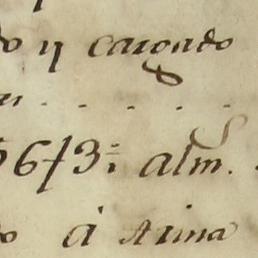 do y cargado
. . . . .
673 alm.
do á Arina